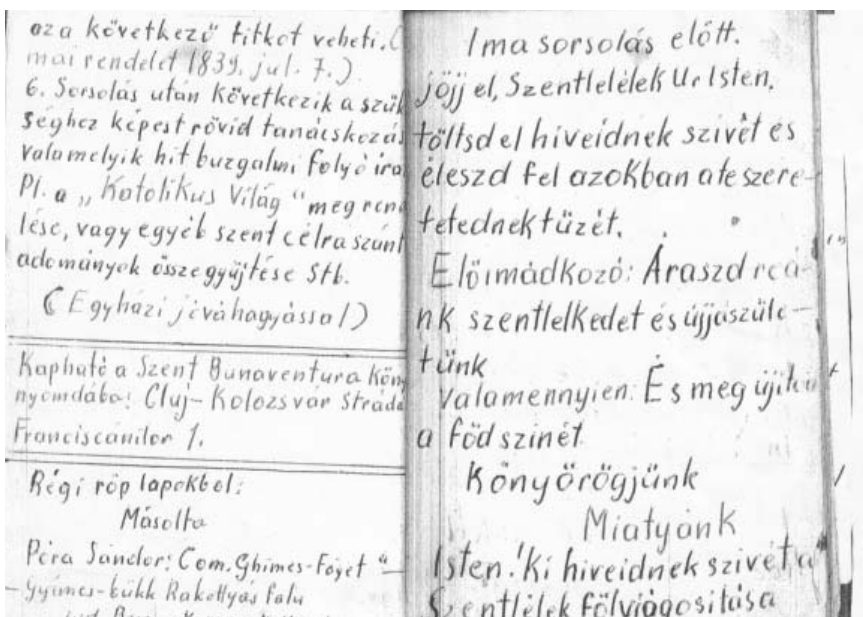 az a következő titkot veheti. (
mai rendelet 1839. jul. 7.)
6. Sorsolás utan következik a szük
séghez képest rövid tanácskozás
valamelyik hit buzgalmi folyó ira
Pl. a „Katolikus Világ" meg rend
lése, vagy egyéb szent célra szánt
adományok össze gyűjtése stb.
(Egyházi jóváhagyással)
Kapható a Szent Bunaventura Köny
nyomdába: Cluj-Kolozsvár Strada
Franciscanilor 1.
Régi röp lapokbol:
Másolta
Péra Sándor: Com. Ghimes-Făget "-
-Gyimes-bükk Rakottyás falu
Ima sorsolás előtt.
jöjj el, Szentlélek Ur Isten,
töltsd el hiveidnek szivét és
éleszd fel azokban a te szere-
tetednek tüzét.
Előimádkozó: Áraszd reá-
nk szentlelkedet és újjászüle-
tünk
valamennyien: És meg újitod
a föd szinét
Könyörögjünk
Miatyánk
Isten! Ki hiveidnek szivét a
Szentlélek fölvilágositása